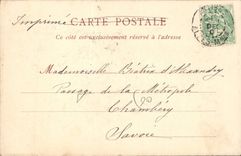 Imprimé
CARTE POSTALE
Ce côté est exclusivement réservé à l'adresse
Mademoiselle Béatrix d'Alexandry
Passage de la Métropole
Chambéry
Savoie